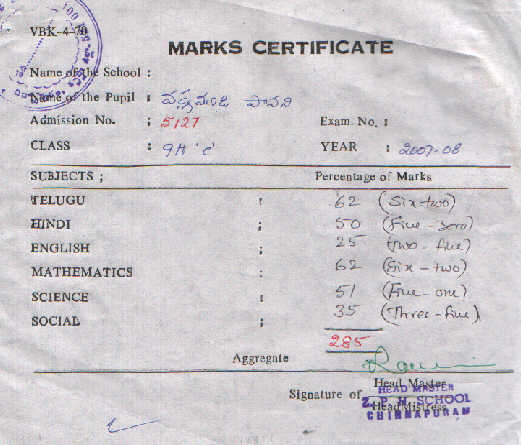 VBK-4-70
MARKS CERTIFICATE
Name of the School :
Name of the Pupil : పావని
Admission No. ; 5127 Exam No. :
CLASS : 9th 'C' YEAR : 2007-08
SUBJECTS ; Percentage of Marks
TELUGU : 62 (Six-two)
HINDI ; 50 (Five-zero)
ENGLISH ; 25 (Two-five)
MATHEMATICS : 62 (Six-two)
SCIENCE : 51 (Five-one)
SOCIAL ; 35 (Three-five)
285
Aggregate
Signature of Head Master
HEAD MASTER
Z. P. H. SCHOOL
Head Mistress
CHINNAPURAM